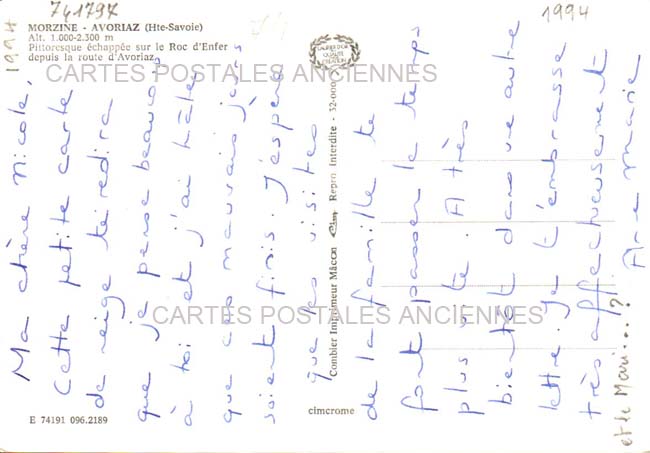 741797
1994
MORZINE - AVORIAZ (Hte-Savoie)
Alt. 1.000-2.300 m
Pittoresque échappée sur le Roc d'Enfer
depuis la route d'Avoriaz
1994
LAURIER D'OR
QUALITÉ
CRÉATION
CARTES POSTALES ANCIENNES
CARTES POSTALES ANCIENNES
Combier Imprimeur Mâcon Cim Repro. Interdite - 32-000
E 74191 096.2189
cimcrome
Ma chère Nicole,
Cette petite carte
de neige te redira
que je pense beaucoup
à toi et j'ai hâte
que ces mauvais jours
soient finis. J'espère
que les visites
de la famille te
font passer le temps
plus vite. A très
bientôt dans une autre
lettre. Je t'embrasse
très affectueusement
Anne Marie
et le Mari...?!